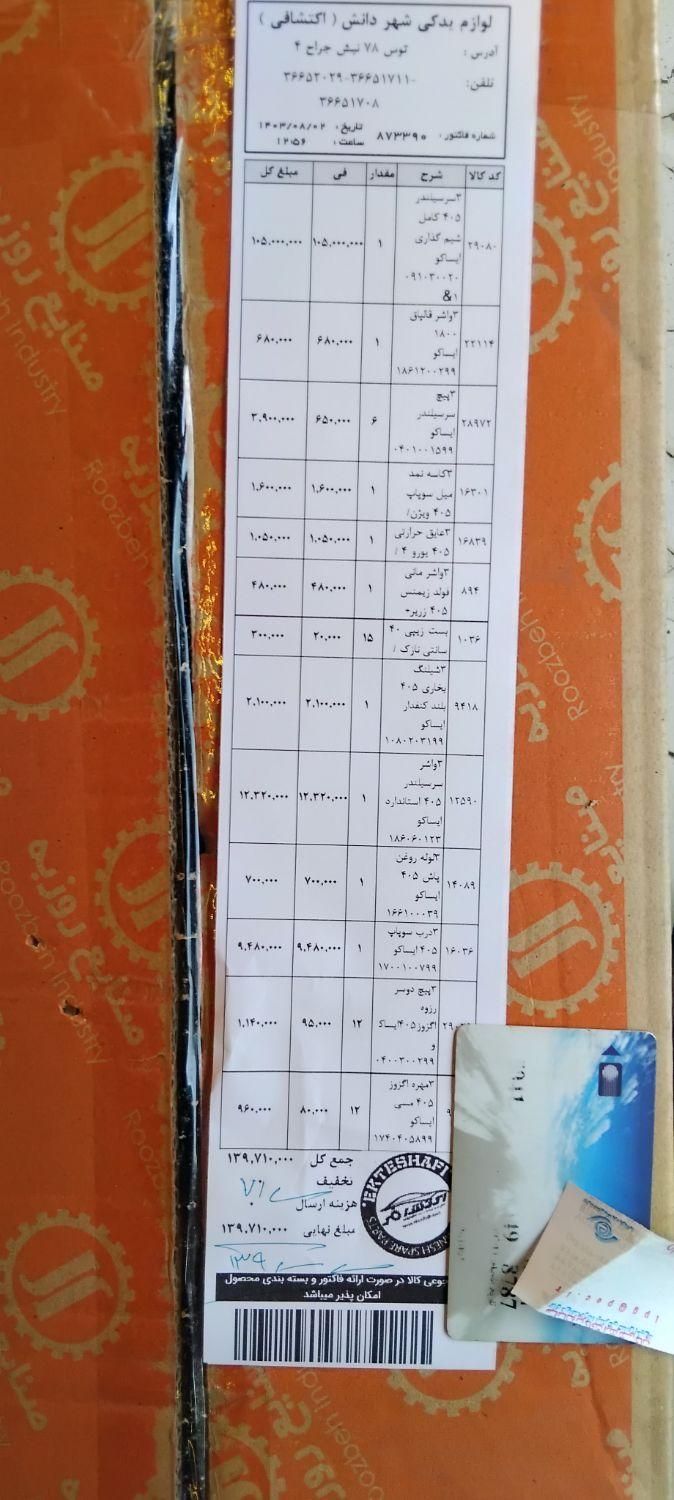 لوازم یدکی شهر دانش ( اکتشافی )
آدرس : توس ۷۸ نبش جراح ۴
تلفن: ۳۶۶۵۲۰۲۹-۳۶۶۵۱۷۱۱-
۳۶۶۵۱۷۰۸
شماره فاکتور : ۸۷۳۳۹۰ تاریخ : ۱۴۰۳/۰۸/۰۲
ساعت : ۱۲:۵۶
کد کالا شرح مقدار فی مبلغ کل
۲۹۰۸۰ ۳سرسیلندر ۱ ۱۰۵,۰۰۰,۰۰۰ ۱۰۵,۰۰۰,۰۰۰
۴۰۵ کامل
شیم گذاری
ایساکو
۰۹۱۰۳۰۰۲۰
۱&
۲۲۱۱۴ ۳واشر قالپاق ۱ ۶۸۰,۰۰۰ ۶۸۰,۰۰۰
۱۸۰۰
ایساکو
۱۸۶۱۲۰۰۲۹۹
۲۸۹۷۲ ۳پیچ ۶ ۶۵۰,۰۰۰ ۳,۹۰۰,۰۰۰
سرسیلندر
ایساکو
۰۴۰۱۰۰۱۵۹۹
۱۶۳۰۱ ۳کاسه نمد ۱ ۱,۶۰۰,۰۰۰ ۱,۶۰۰,۰۰۰
میل سوپاپ
۴۰۵ ویژن/
۱۶۸۳۹ ۳عایق حرارتی ۱ ۱,۰۵۰,۰۰۰ ۱,۰۵۰,۰۰۰
۴۰۵ یورو ۴ /
۸۹۴ ۳واشر مانی ۱ ۴۸۰,۰۰۰ ۴۸۰,۰۰۰
فولد زیمنس
۴۰۵ زریر-
۱۰۳۶ بست زیپی ۴۰ ۱۵ ۲۰,۰۰۰ ۳۰۰,۰۰۰
سانتی نازک /
۹۴۱۸ ۳شیلنگ ۱ ۲,۱۰۰,۰۰۰ ۲,۱۰۰,۰۰۰
بخاری ۴۰۵
بلند کنفدار
ایساکو
۱۰۸۰۲۰۳۱۹۹
۱۲۵۹۰ ۳واشر ۱ ۱۲,۳۲۰,۰۰۰ ۱۲,۳۲۰,۰۰۰
سرسیلندر
۴۰۵ استاندارد
ایساکو
۱۸۶۰۶۰۱۲۳
۱۴۰۸۹ ۳لوله روغن ۱ ۷۰۰,۰۰۰ ۷۰۰,۰۰۰
پاش ۴۰۵
ایساکو
۱۶۶۱۰۰۰۳۹
۱۶۰۳۶ ۳درب سوپاپ ۱ ۹,۴۸۰,۰۰۰ ۹,۴۸۰,۰۰۰
۴۰۵ ایساکو
۱۷۰۰۱۰۰۷۹۹
۳پیچ دوسر ۱۲ ۹۵,۰۰۰ ۱,۱۴۰,۰۰۰
رزوه
اگزوز۴۰۵ایساک
و
۰۴۰۰۳۰۰۲۹۹
۳مهره اگزوز ۱۲ ۸۰,۰۰۰ ۹۶۰,۰۰۰
۴۰۵ مسی
ایساکو
۱۷۴۰۴۰۵۸۹۹
جمع کل ۱۳۹,۷۱۰,۰۰۰
تخفیف
هزینه ارسال
مبلغ نهایی ۱۳۹,۷۱۰,۰۰۰
EKTESHAFI
SPARE PARTS
جوعی کالا در صورت ارائه فاکتور و بسته بندی محصول
امکان پذیر میباشد
8787
صنایع روزبه
Roozbeh Industry